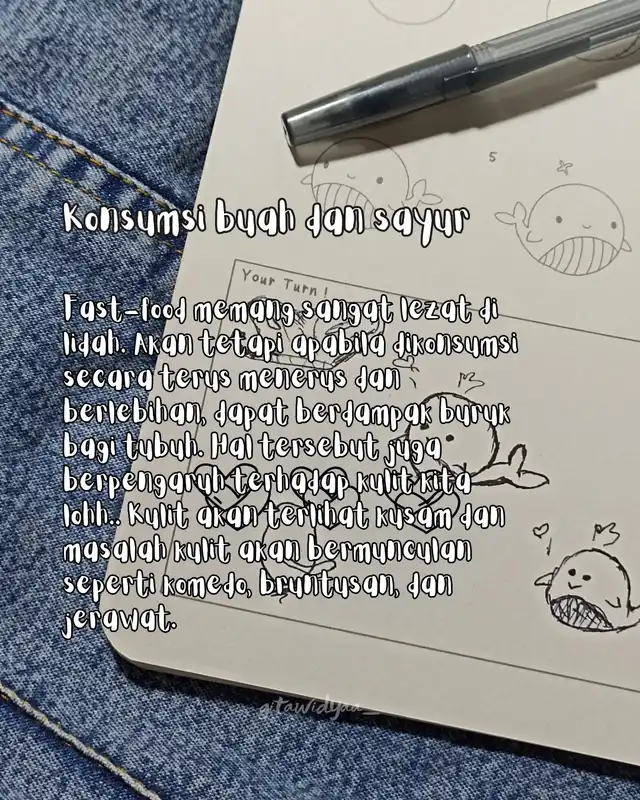 5
Konsumsi buah dan sayur
Your Turn!
Fast-food memang sangat lezat di
lidah. Akan tetapi apabila dikonsumsi
secara terus menerus dan
berlebihan, dapat berdampak buruk
bagi tubuh. Hal tersebut juga
berpengaruh terhadap kulit kita
lohh.. Kulit akan terlihat kusam dan
masalah kulit akan bermunculan
seperti komedo, bruntusan, dan
jerawat.
gitawidyaa_